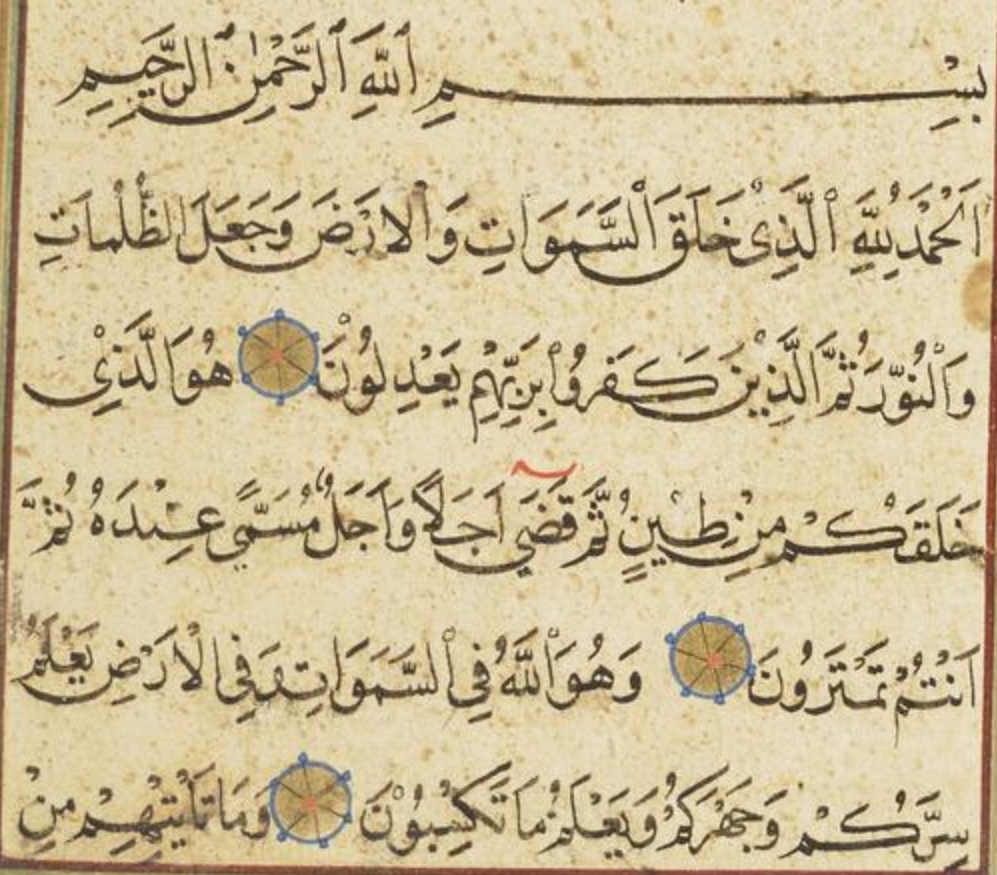 بِسْمِ ٱللَّهِ ٱلرَّحْمٰنِ ٱلرَّحِيمِ
اَلْحَمْدُ لِلَّهِ ٱلَّذِىْ خَلَقَ ٱلسَّمَوَاتِ وَٱلْارْضَ وَجَعَلَ الظُّلُمَاتِ
وَٱلنُّوْرَ ثُمَّ الَّذِيْنَ كَفَرُوْا بِرَبِّهِمْ يَعْدِلُوْنَ هُوَ الَّذِىْ
خَلَقَكُمْ مِنْ طِيْنٍ ثُمَّ قَضَىٓ اَجَلًا وَاَجَلٌ مُسَمًّى عِنْدَهُ ثُمَّ
اَنْتُمْ تَمْتَرُونَ وَهُوَ ٱللَّهُ فِى ٱلسَّمَوَاتِ وَفِى الْارْضِ يَعْلَمُ
سِرَّكُمْ وَجَهْرَكُمْ وَيَعْلَمُ مَا تَكْسِبُوْنَ وَمَا تَأْتِيْهِمْ مِنْ